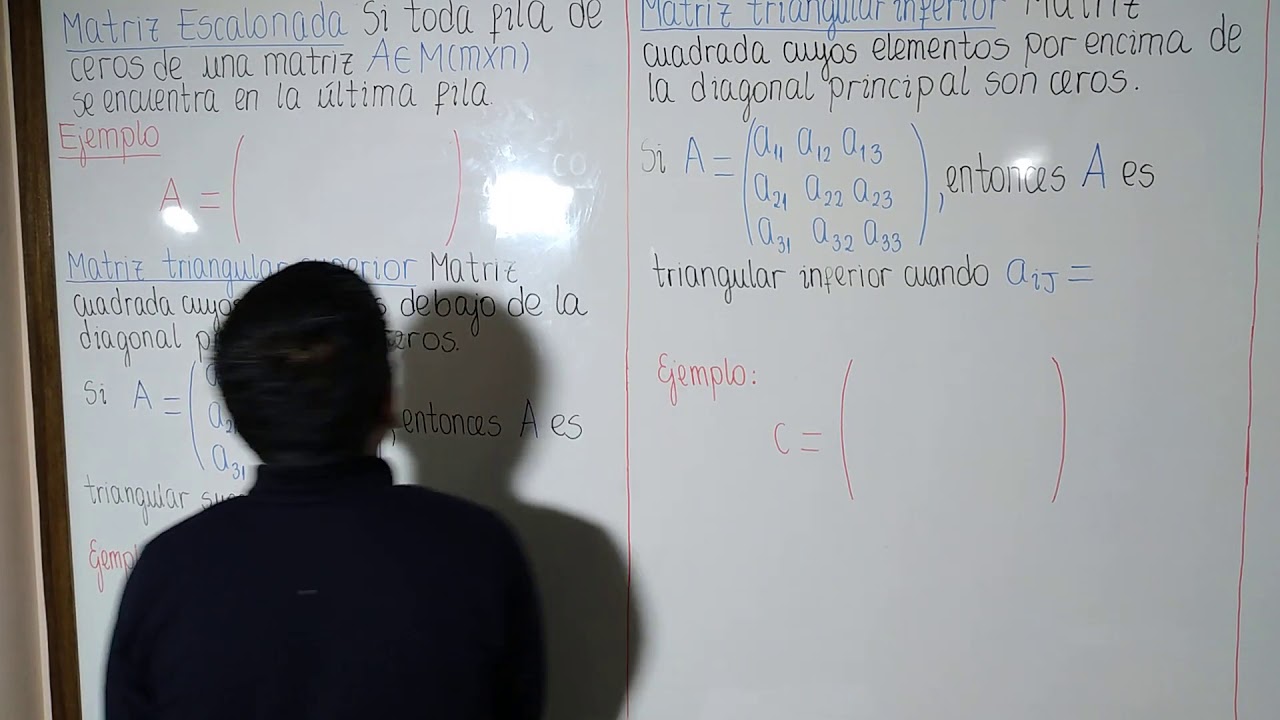 Matriz Escalonada Si toda fila de
ceros de una matriz A∈M(mxn)
se encuentra en la última fila.
Ejemplo
A = ( )
Matriz triangular superior Matriz
cuadrada debajo de la
diagonal
Si A = ( , entonces A es
a31
triangular
Matriz triangular inferior Matriz
cuadrada cuyos elementos por encima de
la diagonal principal son ceros.
Si A = ( a11 a12 a13
a21 a22 a23 ) , entonces A es
a31 a32 a33
triangular inferior cuando aiJ =
Ejemplo:
C = ( )